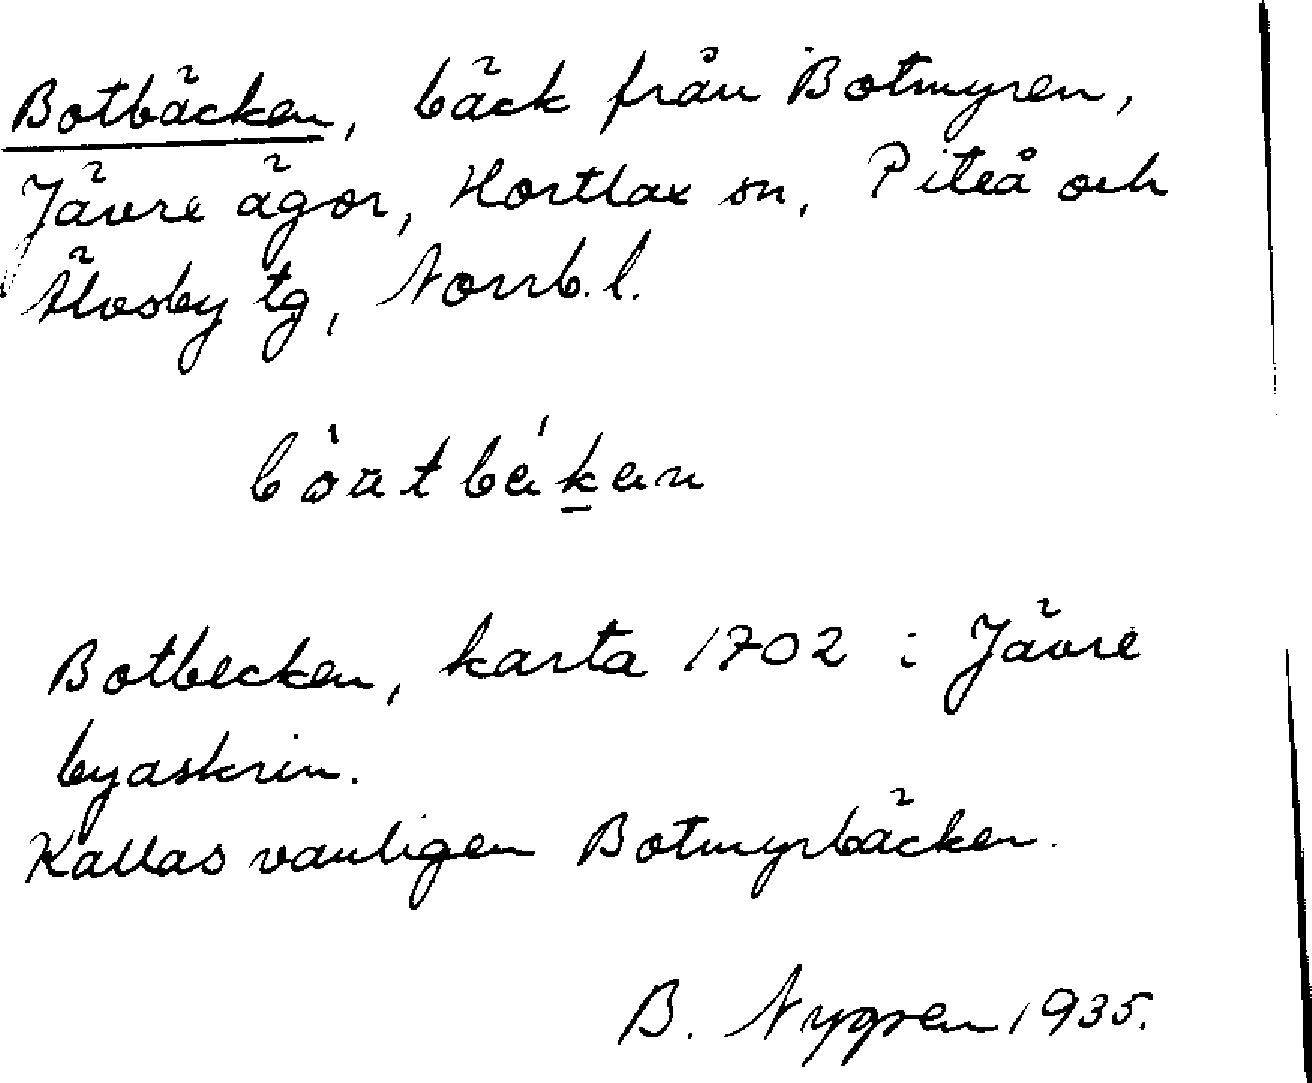 Botbäcken, bäck från Botmyren,
Jävre ägor, Hortlax sn, Piteå och
Älvsby tg, Norrb. l.
Botbecken, karta 1702 i Jävre
byaskrin.
Kallas vanligen Botmyrbäcken.
B. Nygren 1935.